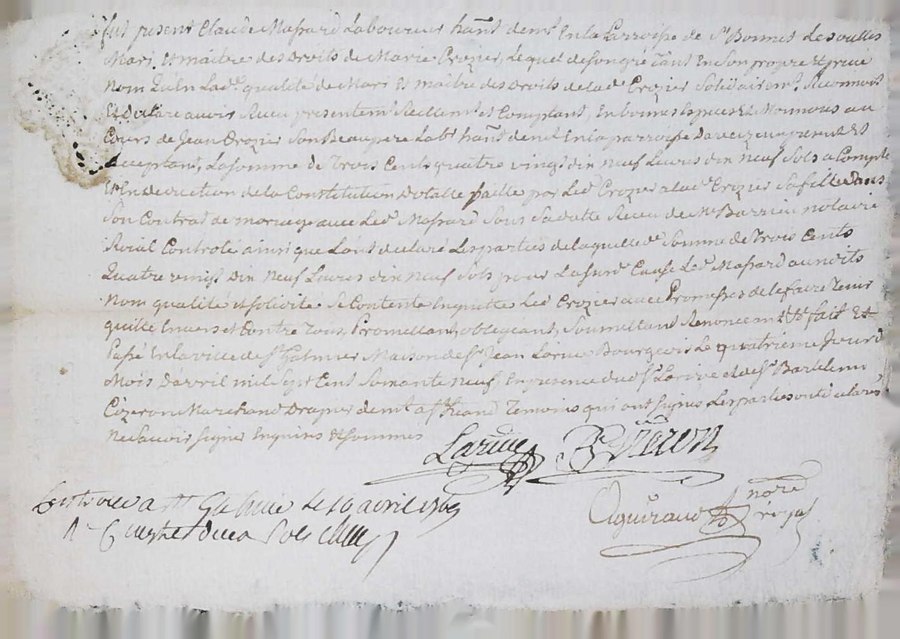 fut present Claude Massard Laboureur hant demt En la Parroisse de St Bonnet Les oulles
Mari Et maitre des Droits de Marie Crozier Lequel de son gre tant En son propre Et prive
Nom Qu'En Lade qualité de Mari Et maitre des Droits de lade Crozier Solidairemt Reconnoit
Et declare avoir Receu presentemt Reellemt et Comptant En bonnes Especes Et Monnoies au
Cours de Jean Crozier Son Beau pere Labr hant demt En la parroisse D'aveizeu present Et
acceptant, La somme de Trois Cents quatre vingt dix neuf Livres dix neuf Sols a Compte
Et En deduction de la Constitution Dotalle faitte par Led Crozier a lade Crozier Sa fille Dans
Son Contrat de mariage avec Led Massard Sous Sa datte Receu de Me Barrieu notaire
Roial Controlé ainsi que L'ont declaré Les parties de laquelle de Somme de Trois Cents
Quatre vingt Dix Neuf Livres dix neuf Sols pour La susde Cause Led Massard auxdits
Nom qualité et solidité Se Contente En quitte Led Crozier avec Promesses de le faire Tenir
quitte Envers et Contre tous, Promettant, obligeant, Soumettant Renonceant &c fait Et
Passé En la ville de St Galmier Maison de Sr Jean Larive Bourgeois Le quatrieme Jour d
Mois D'avril mil Sept Cent Soixante Neuf En presence dud Sr Larive et de Sr Bartelemi
Cozeron Marchand Drapier demt a St Temoins qui ont signes Les parties ont declarés
Ne Scavoir signer Enquis Et Sommes
Larive Bmi Cozeron
Aguiraud nore royal
Controllé a St Galmie Le 10 avril 1769